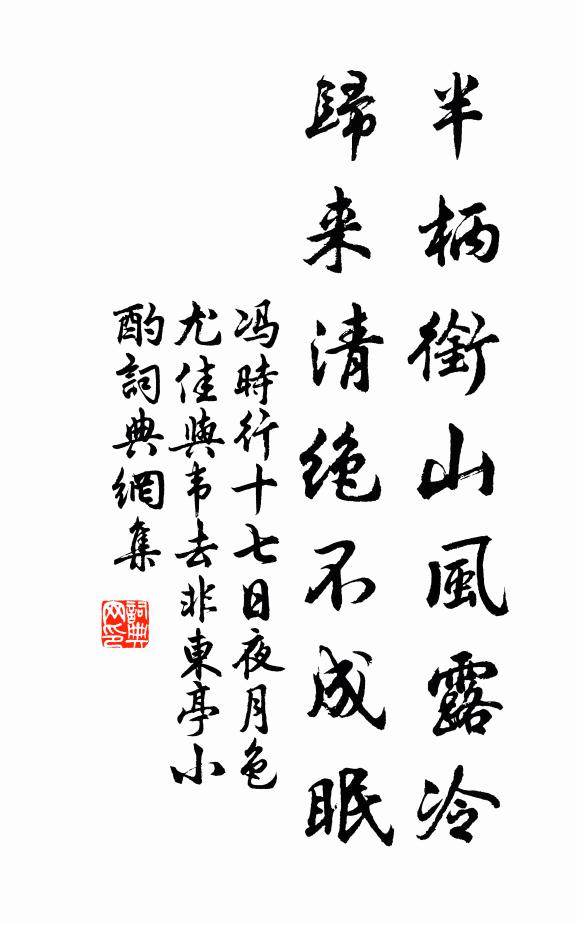 半柄銜山風露冷
歸来清绝不成眠
冯時行十七日夜月色
尤佳與韦去非東亭小
酌詞典網集
詞典
网印